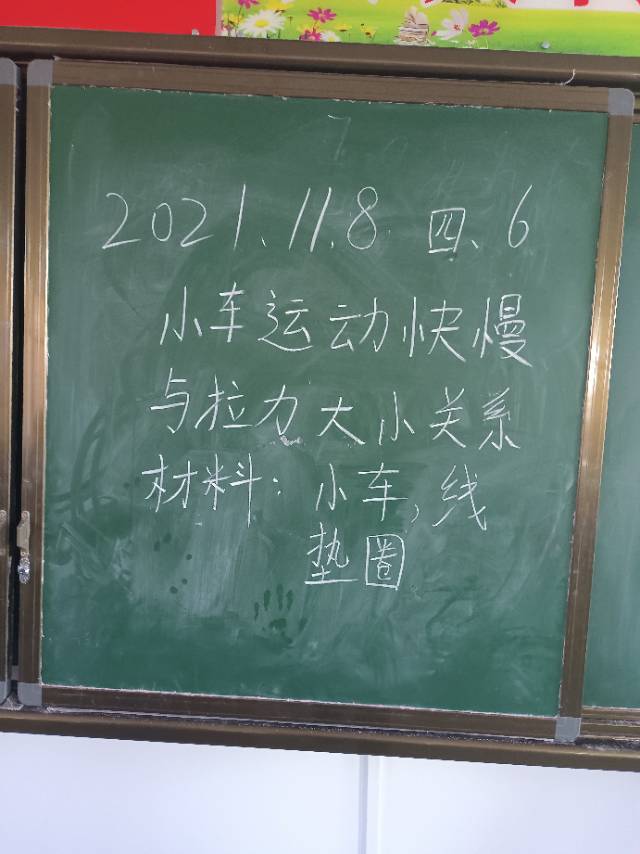 2021.11.8 四、6
小车运动快慢
与拉力大小关系
材料：小车,线
垫圈